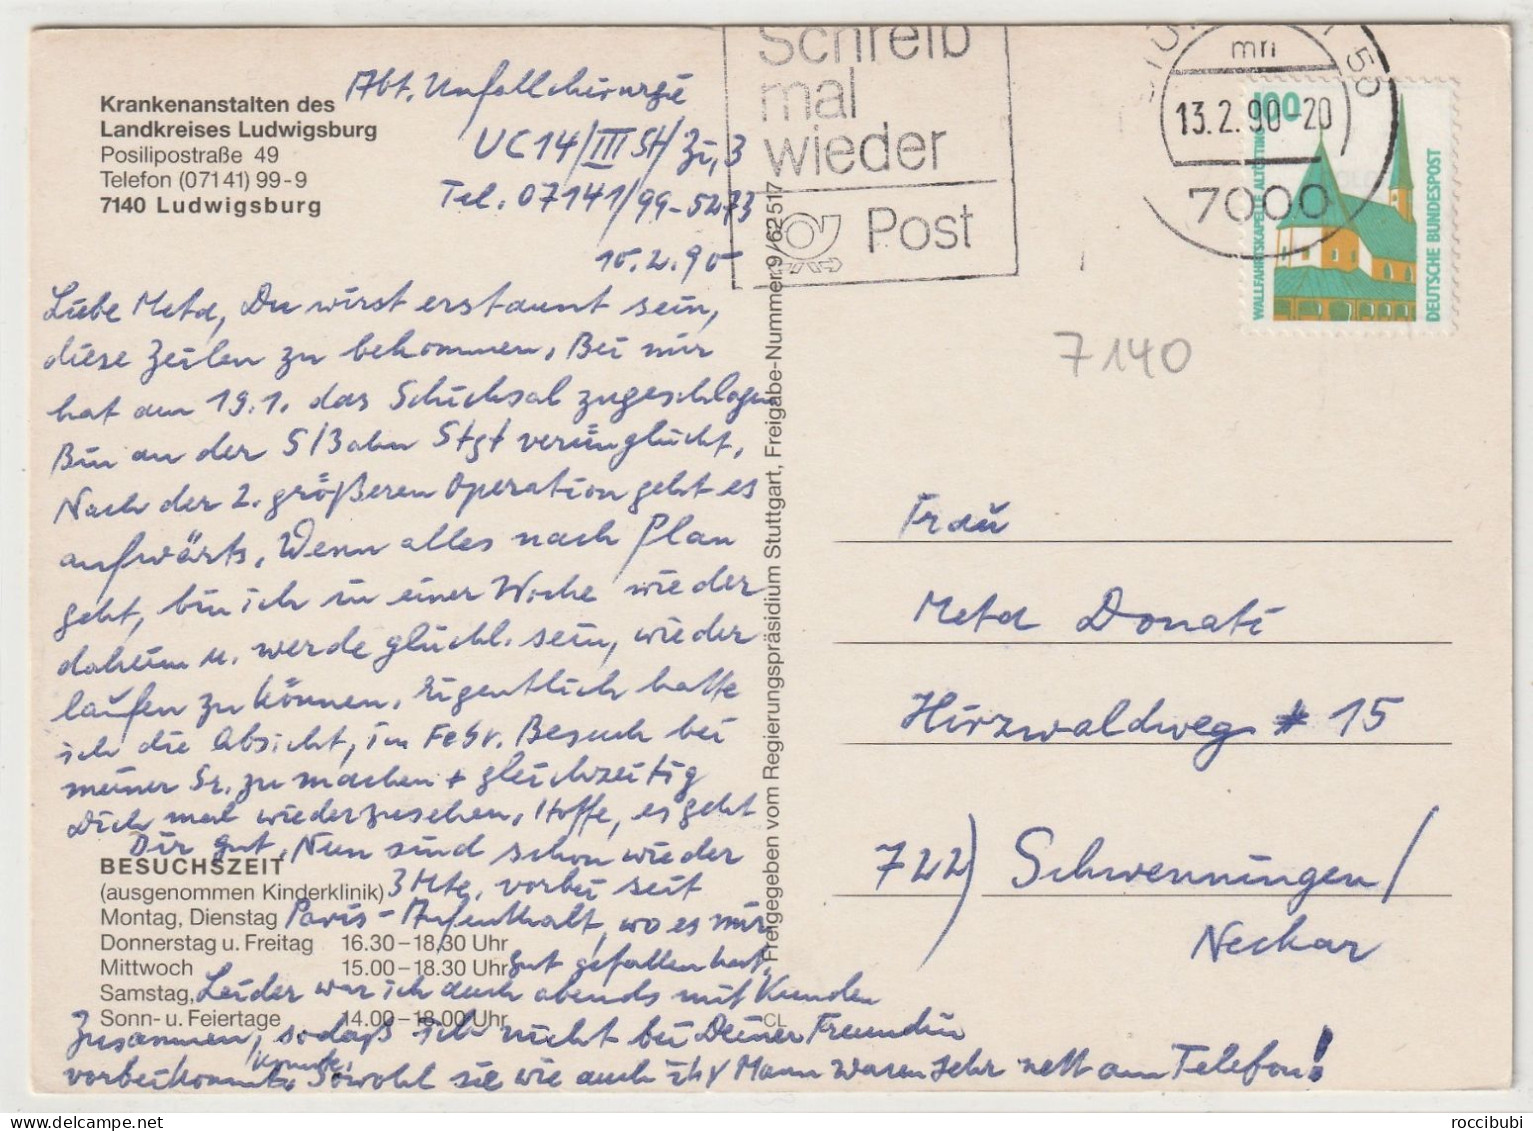 Krankenanstalten des
Landkreises Ludwigsburg
Posilipostraße 49
Telefon (07141) 99-9
7140 Ludwigsburg
Abt. Unfallchirurgie
UC14/III St/Zi, 3
Tel. 07141/99-5273
10.2.90
Liebe Meta, Du wirst erstaunt sein,
diese Zeilen zu bekommen. Bei mir
hat am 19.1. das Schicksal zugeschlagen
Bin an der S/Bahn Stgt verunglückt,
Nach der 2. größeren Operation geht es
aufwärts. Wenn alles nach Plan
geht, bin ich in einer Woche wieder
daheim u. werde glückl. sein, wieder
laufen zu können. Eigentlich hatte
ich die Absicht, im Febr. Besuch bei
meiner Sr. zu machen + gleichzeitig
Dich mal wiederzusehen. Hoffe, es geht
Dir gut. Nun sind schon wieder
3 Mte. vorbei seit
Paris-Aufenthalt, wo es mir
gut gefallen hat.
Leider war ich auch abends mit Kunden
zusammen, sodaß ich nicht bei Deiner Freundin
vorbeikommen konnte. Sowohl sie wie auch ihr Mann waren sehr nett am Telefon!
BESUCHSZEIT
(ausgenommen Kinderklinik)
Montag, Dienstag
Donnerstag u. Freitag 16.30–18.30 Uhr
Mittwoch 15.00–18.30 Uhr
Samstag,
Sonn- u. Feiertage 14.00–18.00 Uhr
Freigegeben vom Regierungspräsidium Stuttgart, Freigabe-Nummer 9/62517
CL
Schreib
mal
wieder
Post
55
mn
13.2.90-20
7000
100
WALLFAHRTSKAPELLE ALTÖTTING
DEUTSCHE BUNDESPOST
7140
Frau
Meta Donati
Hirzwaldweg 15
722) Schwenningen/
Neckar
roccibubi